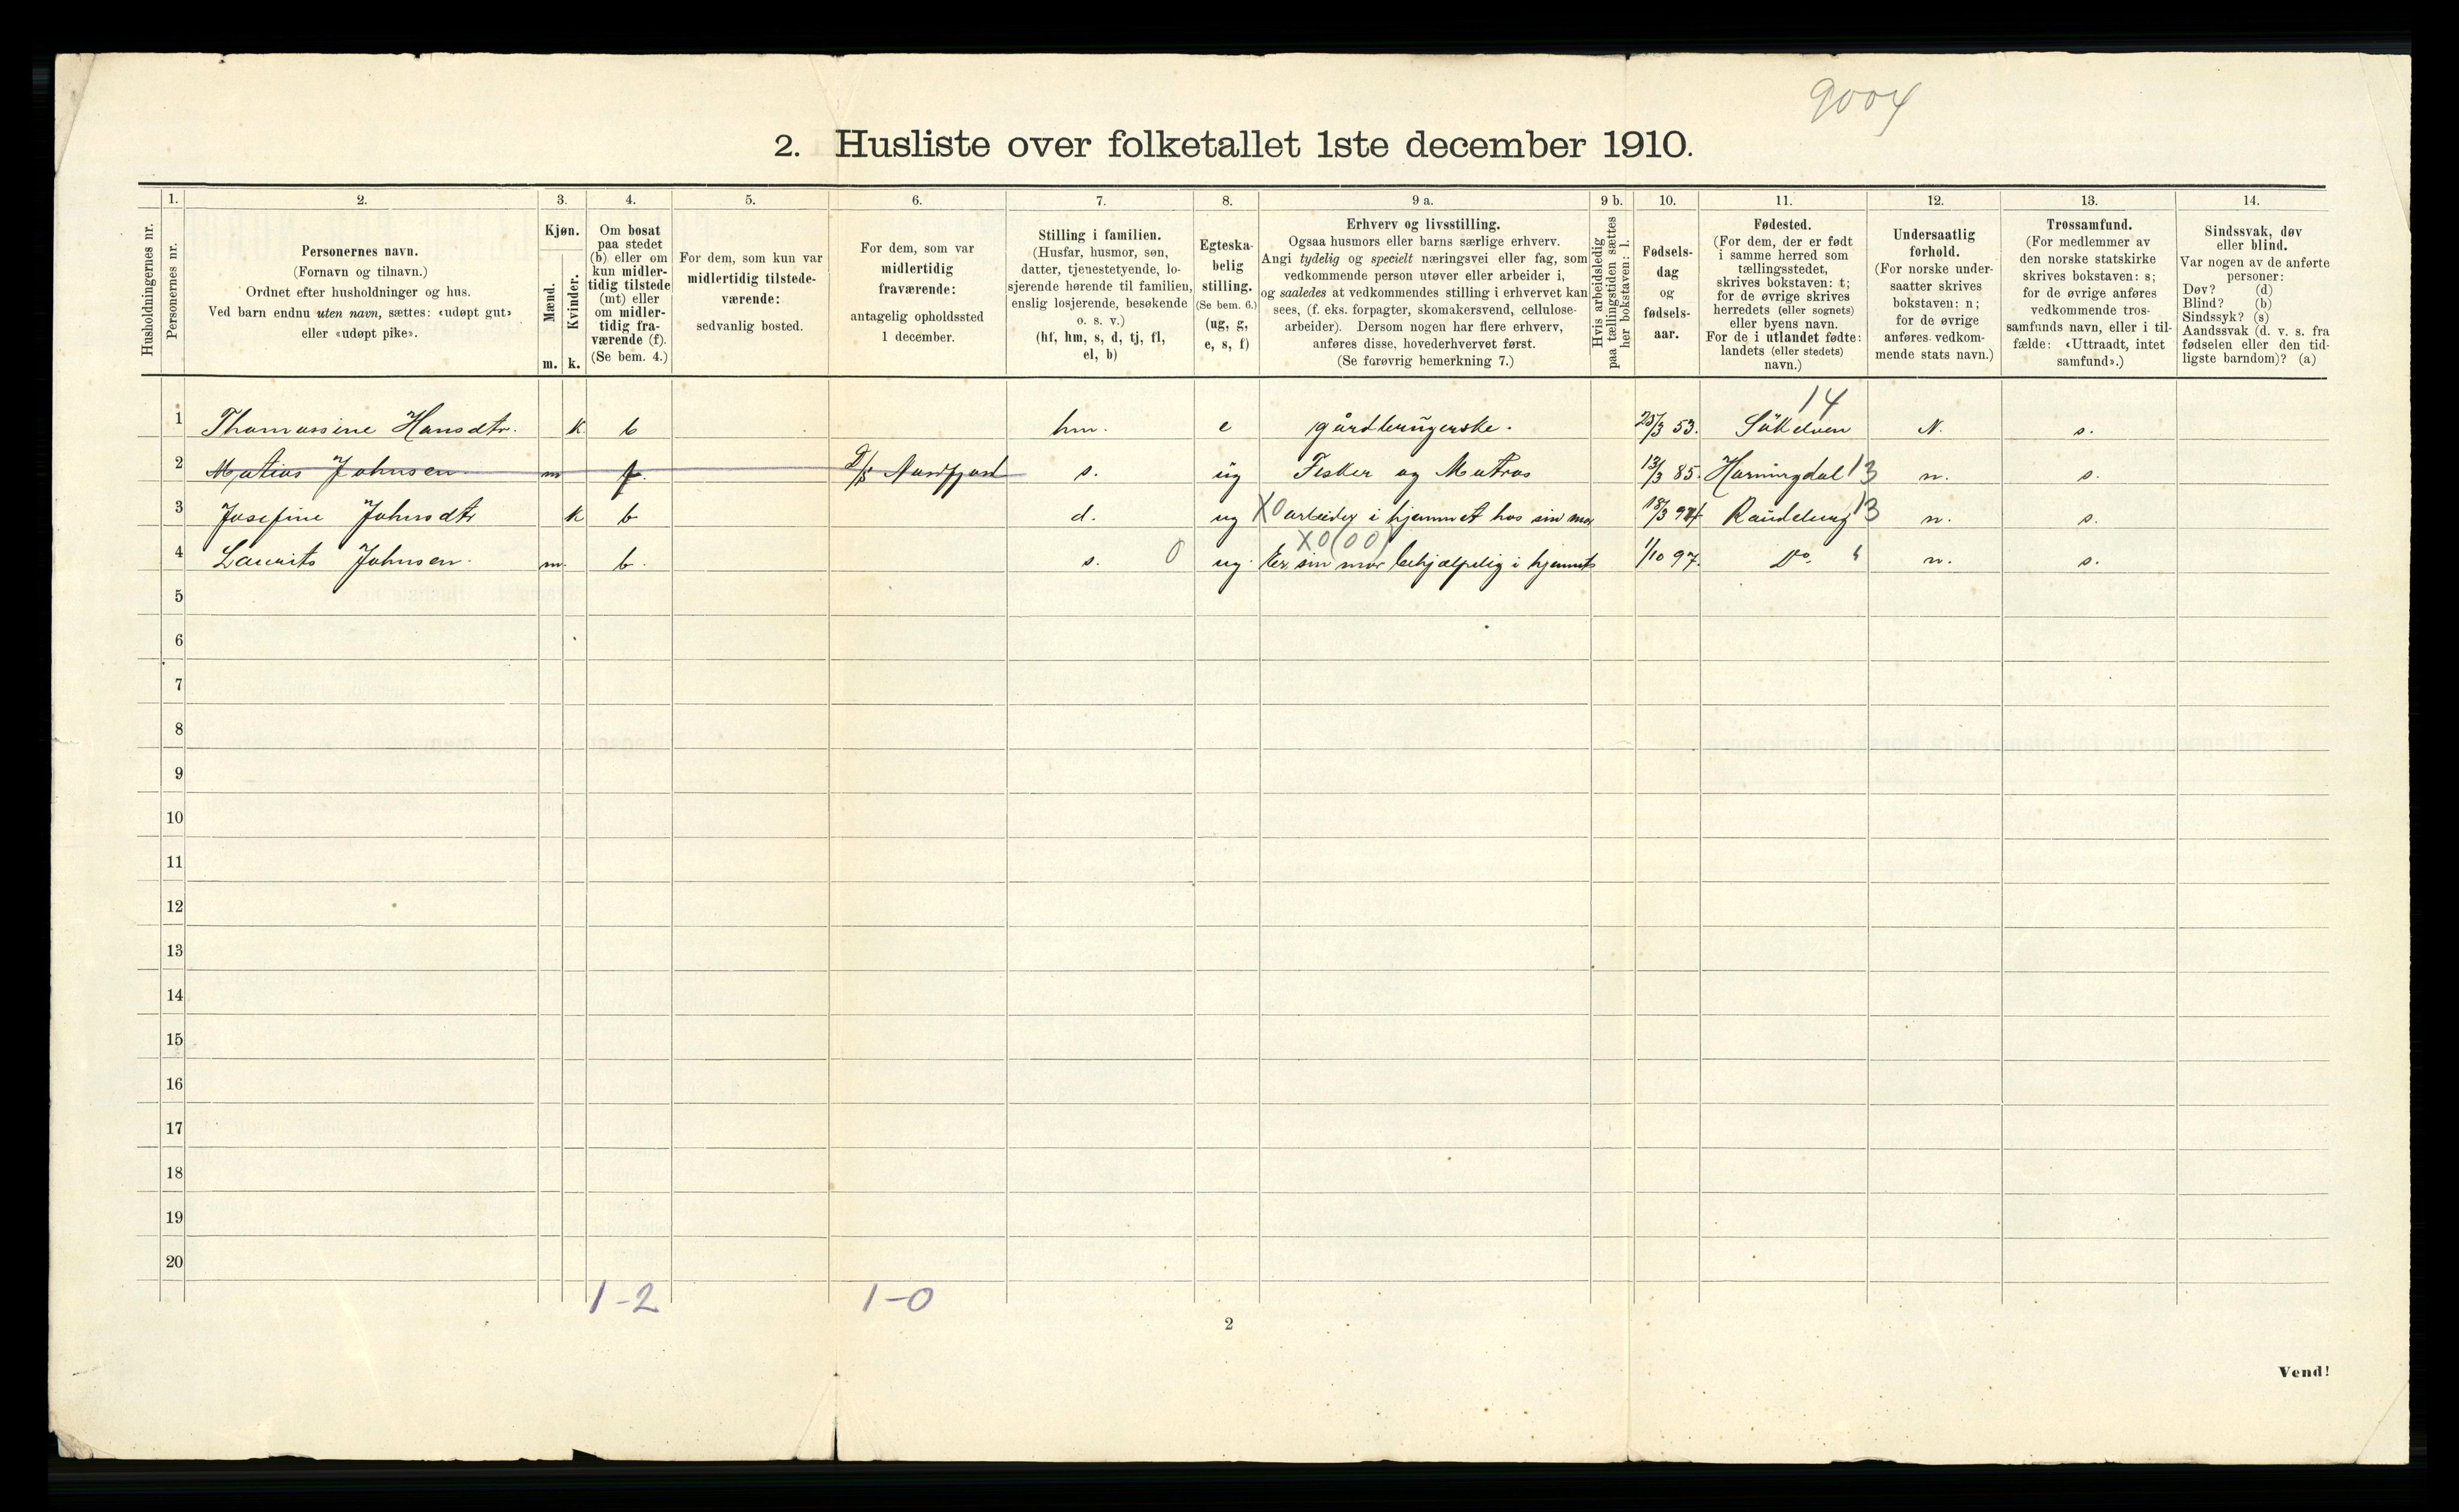 9004
2. Husliste over folketallet 1ste december 1910.
Husholdningernes nr.
1.
Personernes nr.
2.
Personernes navn.
(Fornavn og tilnavn.)
Ordnet efter husholdninger og hus.
Ved barn endnu uten navn, sættes: «udøpt gut»
eller «udøpt pike».
3.
Kjøn.
Mænd.
Kvinder.
m. k.
4.
Om bosat
paa stedet
(b) eller om
kun midler-
tidig tilstede
(mt) eller
om midler-
tidig fra-
værende (f).
(Se bem. 4.)
5.
For dem, som kun var
midlertidig tilstede-
værende:
sedvanlig bosted.
6.
For dem, som var
midlertidig
fraværende:
antagelig opholdssted
1 december.
7.
Stilling i familien.
(Husfar, husmor, søn,
datter, tjenestetyende, lo-
sjerende hørende til familien,
enslig losjerende, besøkende
o. s. v.)
(hf, hm, s, d, tj, fl,
el, b)
8.
Egteska-
belig
stilling.
(Se bem. 6.)
(ug, g,
e, s, f)
9 a.
Erhverv og livsstilling.
Ogsaa husmors eller barns særlige erhverv.
Angi tydelig og specielt næringsvei eller fag, som
vedkommende person utøver eller arbeider i,
og saaledes at vedkommendes stilling i erhvervet kan
sees, (f. eks. forpagter, skomakersvend, cellulose-
arbeider). Dersom nogen har flere erhverv,
anføres disse, hovederhvervet først.
(Se forøvrig bemerkning 7.)
9 b.
Hvis arbeidsledig
paa tællingstiden sættes
her bokstaven: l.
10.
Fødsels-
dag
og
fødsels-
aar.
11.
Fødested.
(For dem, der er født
i samme herred som
tællingsstedet,
skrives bokstaven: t;
for de øvrige skrives
herredets (eller sognets)
eller byens navn.
For de i utlandet fødte:
landets (eller stedets)
navn.)
12.
Undersaatlig
forhold.
(For norske under-
saatter skrives
bokstaven: n;
for de øvrige
anføres vedkom-
mende stats navn.)
13.
Trossamfund.
(For medlemmer av
den norske statskirke
skrives bokstaven: s;
for de øvrige anføres
vedkommende tros-
samfunds navn, eller i til-
fælde: «Uttraadt, intet
samfund».)
14.
Sindssvak, døv
eller blind.
Var nogen av de anførte
personer:
Døv? (d)
Blind? (b)
Sindssyk? (s)
Aandssvak (d. v. s. fra
fødselen eller den tid-
ligste barndom)? (a)
14
1 Thomassine Hansdtr. k b hm. e gårdbrugerske. 25/3 53. Sükelven N. s.
2 Matias Johnsen m f. D/s Nordfjord s. üg Fisker og Matros 13/3 85. Horningdal 13 n. s.
3 Josefine Johnsdtr k b d. ug X0 arbeider i hjemmet hos sin mor 18/3 94 13 n. s.
X0(00)
4 Laurits Johnsen. m. b. s. 0 ug. Er sin mor behjælpelig i hjemmet 1/10 97. Do. " n. s.
5
6
7
8
9
10
11
12
13
14
15
16
17
18
19
20
1-2 1-0
2
Vend!